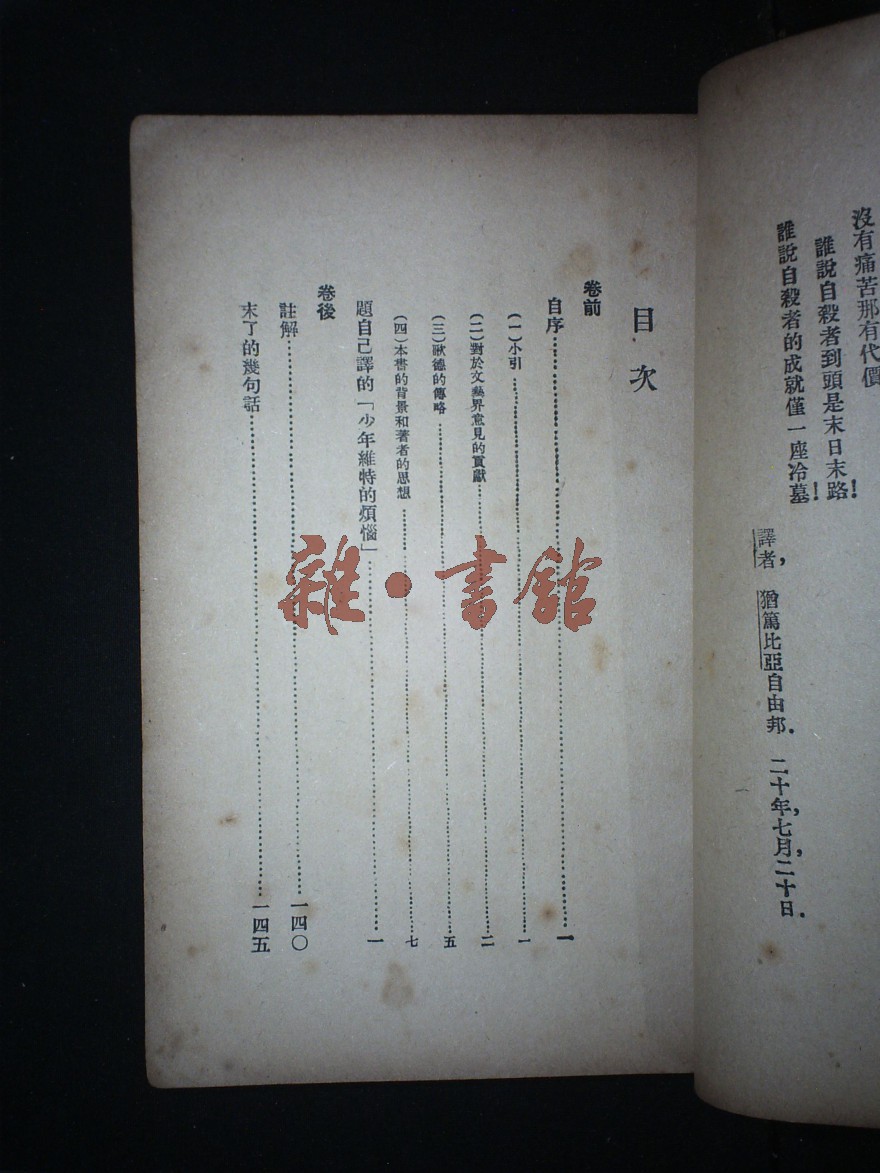 沒有痛苦那有代價
誰說自殺者到頭是末日末路！
誰說自殺者的成就僅一座冷墓！
譯者，猶篤比亞自由邦．二十年，七月，二十日．
目次
卷前
自序……一
（一）小引……一
（二）對於文藝界意見的貢獻……二
（三）歌德的傳略……五
（四）本書的背景和著者的思想……七
題自己譯的「少年維特的煩惱」……一
卷後
註解……一四〇
末了的幾句話……一四五
雜·書館